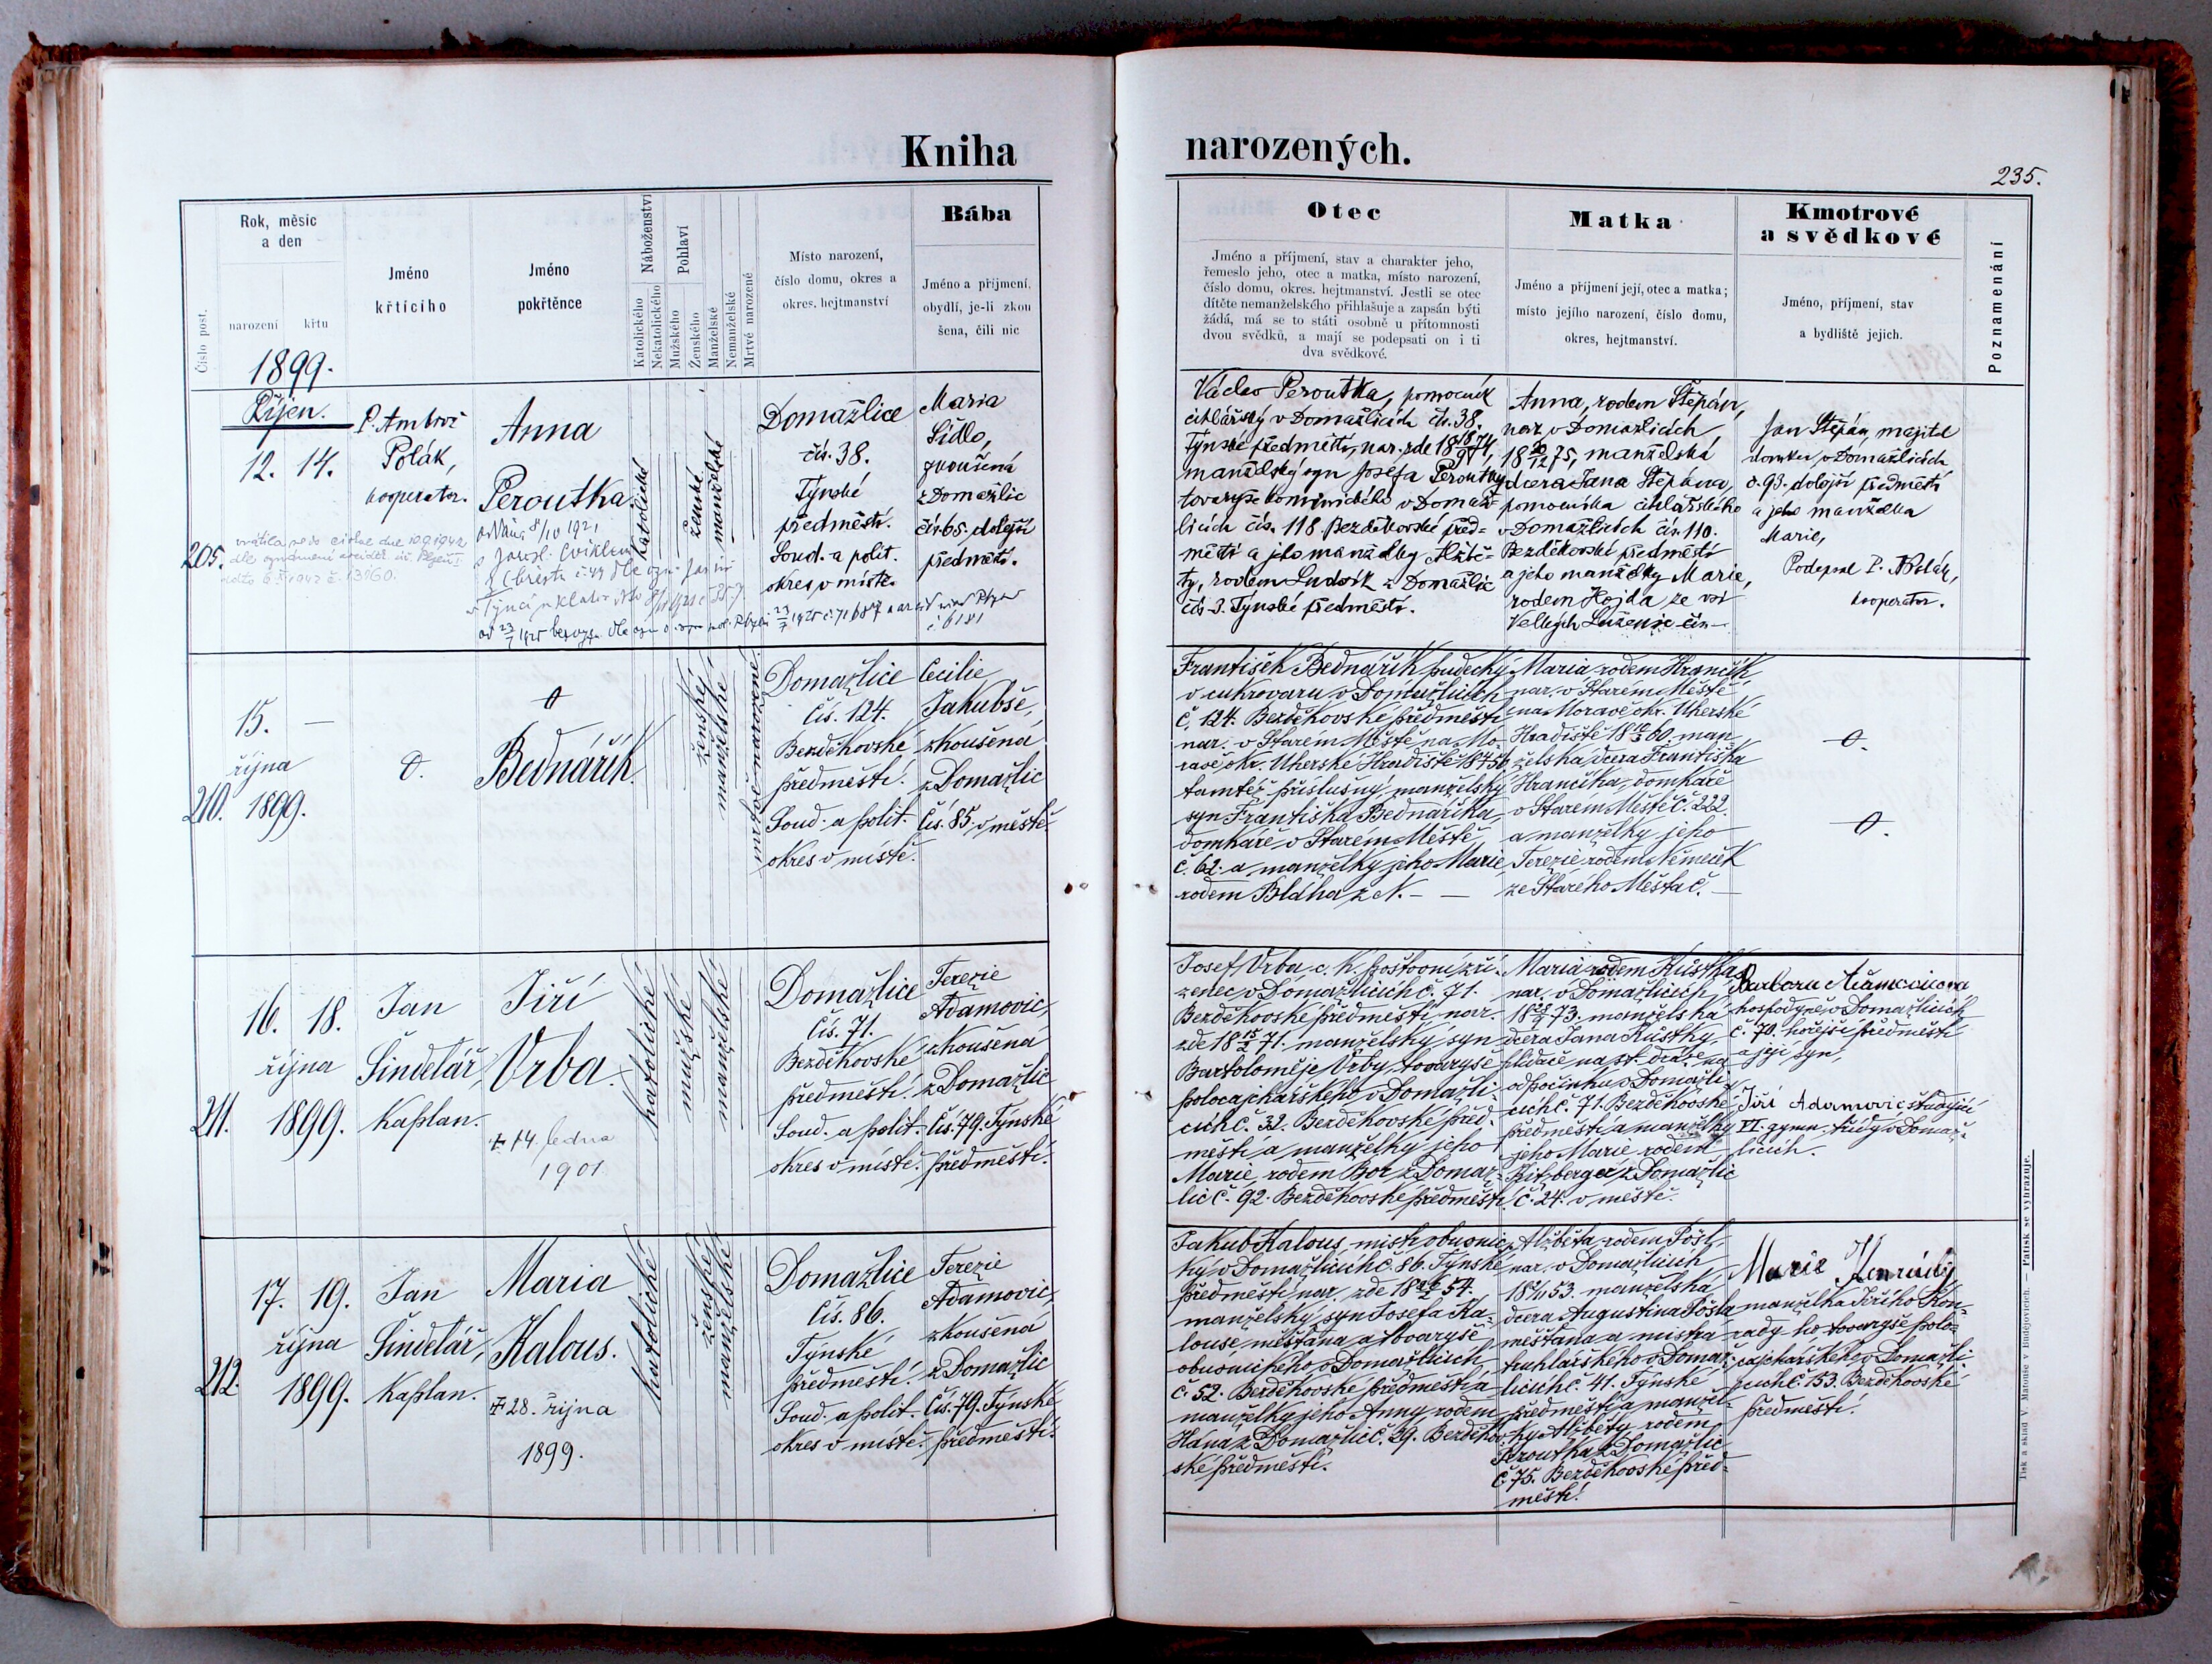 Kniha
narozených.
235.
Číslo post.
Rok, měsíc
a den
narození
křtu
1899.
Jméno
křtícího
Jméno
pokřtěnce
Náboženství
Katolického
Nekatolického
Pohlaví
Mužského
Ženského
Manželské
Nemanželské
Mrtvě narozené
Místo narození,
číslo domu, okres a
okres. hejtmanství
Bába
Jméno a příjmení,
obydlí, je-li zkou
šena, čili nic
Otec
Jméno a příjmení, stav a charakter jeho,
řemeslo jeho, otec a matka, místo narození,
číslo domu, okres. hejtmanství. Jestli se otec
dítěte nemanželského přihlašuje a zapsán býti
žádá, má se to státi osobně u přítomnosti
dvou svědků, a mají se podepsati on i ti
dva svědkové.
Matka
Jméno a příjmení její, otec a matka;
místo jejího narození, číslo domu,
okres, hejtmanství.
Kmotrové
a svědkové
Jméno, příjmení, stav
a bydliště jejich.
Poznamenání
205.
Říjen.
12. 14.
P. Ambrož
Polák,
kooperator.
Anna
Peroutka
katolické
ženské
manželské
Domažlice
čís. 38.
Týnské
předměstí.
Soud. a polit.
okres v místě.
Maria
Sidlo,
zkoušená
z Domažlic
čís. 65. dolejší
předměstí.
Václav Peroutka, pomocník
cihlářský v Domažlicích čís. 38.
Týnské předměstí, nar. zde 18 18/9 74,
manželský syn Josefa Peroutky
tovaryše kominického v Domaž-
licích čís. 118. Bezděkovské před-
městí a jeho manželky Alžbě-
ty, rodem Ludvík z Domažlic
čís. 3. Týnské předměstí.
Anna, rodem Štěpán,
nar. v Domažlicích
75, manželská
dcera Jana Štěpána,
pomocníka cihlářského
v Domažlicích čís. 110.
Bezděkovské předměstí
a jeho manželky Marie,
rodem Hojda ze vsi
Velkých Luženic čís —
Jan Štěpán, majitel
domku v Domažlicích
č. 93. dolejší předměstí
a jeho manželka
Marie,
Podepsal P. A. Polák,
kooperator.
vrátila se do církve dne 10.9.1942
oddána 8/10 1921
210.
15. —
října
1899.
Bednářík.
ženský
manželské
mrtvě narozené.
Domažlice
čís. 124.
Bezděkovské
předměstí.
Soud. a polit.
okres v místě.
Cecilie
Jakubše,
zkoušená
z Domažlic
čís. 85, v městě.
František Bednářík
v cukrovaru v Domažlicích
č. 124. Bezděkovské předměstí
nar. v Starém Městě na Mo-
ravě okr. Uherské Hradiště 1845
tamtéž příslušný, manželský
syn Františka Bednáříka,
domkáře v Starém Městě
č. 62. a manželky jeho Marie
rodem Bláha z N. — —
Maria rodem Hrančík
nar. v Starém Městě
na Moravě okr. Uherské
Hradiště 60. man-
želská dcera Františka
Hrančíka, domkáře
v Starém Městě č. 222.
a manželky jeho
Terezie rodem Němeček
ze Starého Města č. —
211.
16. 18.
října
1899.
Jan
Šindelář,
kaplan.
Jiří
Vrba.
† 14. ledna
1901.
katolické
mužské
manželské
Domažlice
čís. 71.
Bezděkovské
předměstí.
Soud. a polit.
okres v místě.
Terezie
Adamovic,
zkoušená
z Domažlic
čís. 79. Týnské
předměstí.
Josef Vrba c. k. poštovní zří-
zenec v Domažlicích č. 71.
Bezděkovské předměstí nar.
zde 71. manželský syn
Bartoloměje Vrby, tovaryše
polocajchářského v Domažli-
cích č. 32. Bezděkovské před-
městí a manželky jeho
Marie, rodem Bor z Domaž-
lic č. 92. Bezděkovské předměstí
Maria rodem Růstka
nar. v Domažlicích
73. manželská
dcera Jana Růstky,
hlídače na st. dráze na
odpočinku v Domažli-
cích č. 71. Bezděkovské
předměstí a manželky
jeho Marie rodem
z Domažlic
č. 24. v městě.
Barbora Adamovicova
hospodyně v Domažlicích
č. 70. hořejší předměstí
a její syn,
Jiří Adamovic studující
VI. gymn. třídy v Domaž-
licích.
212.
17. 19.
října
1899.
Jan
Šindelář,
kaplan.
Maria
Kalous.
† 28. října
1899.
katolické
ženské
manželské
Domažlice
čís. 86.
Týnské
předměstí.
Soud. a polit.
okres v místě.
Terezie
Adamovic,
zkoušená
z Domažlic
čís. 79. Týnské
předměstí.
Jakub Kalous, mistr obuvnic-
ký v Domažlicích č. 86. Týnské
předměstí nar. zde 54.
manželský syn Josefa Ka-
louse měšťana a tovaryše
obuvnického v Domažlicích
č. 52. Bezděkovské předměstí a
manželky jeho Anny, rodem
Hána z Domažlic č. 29. Bezděkov-
ské předměstí.
Alžběta rodem Pösl,
nar. v Domažlicích
53. manželská
dcera Augustina Pösla
měšťana a mistra
truhlářského v Domaž-
licích č. 41. Týnské
předměstí a manžel-
ky Alžběty rodem
Peroutka z Domažlic
č. 75. Bezděkovské před-
městí.
Marie
manželka Jiřího Kon-
rady ho tovaryše polo-
cajchářského v Domažli-
cích č. 153. Bezděkovské
předměstí.
Tisk a sklad V. Ratouše v Budějovicích. — Patisk se vyhrazuje.